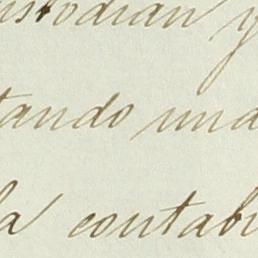 ustodian y
tando una
la contab